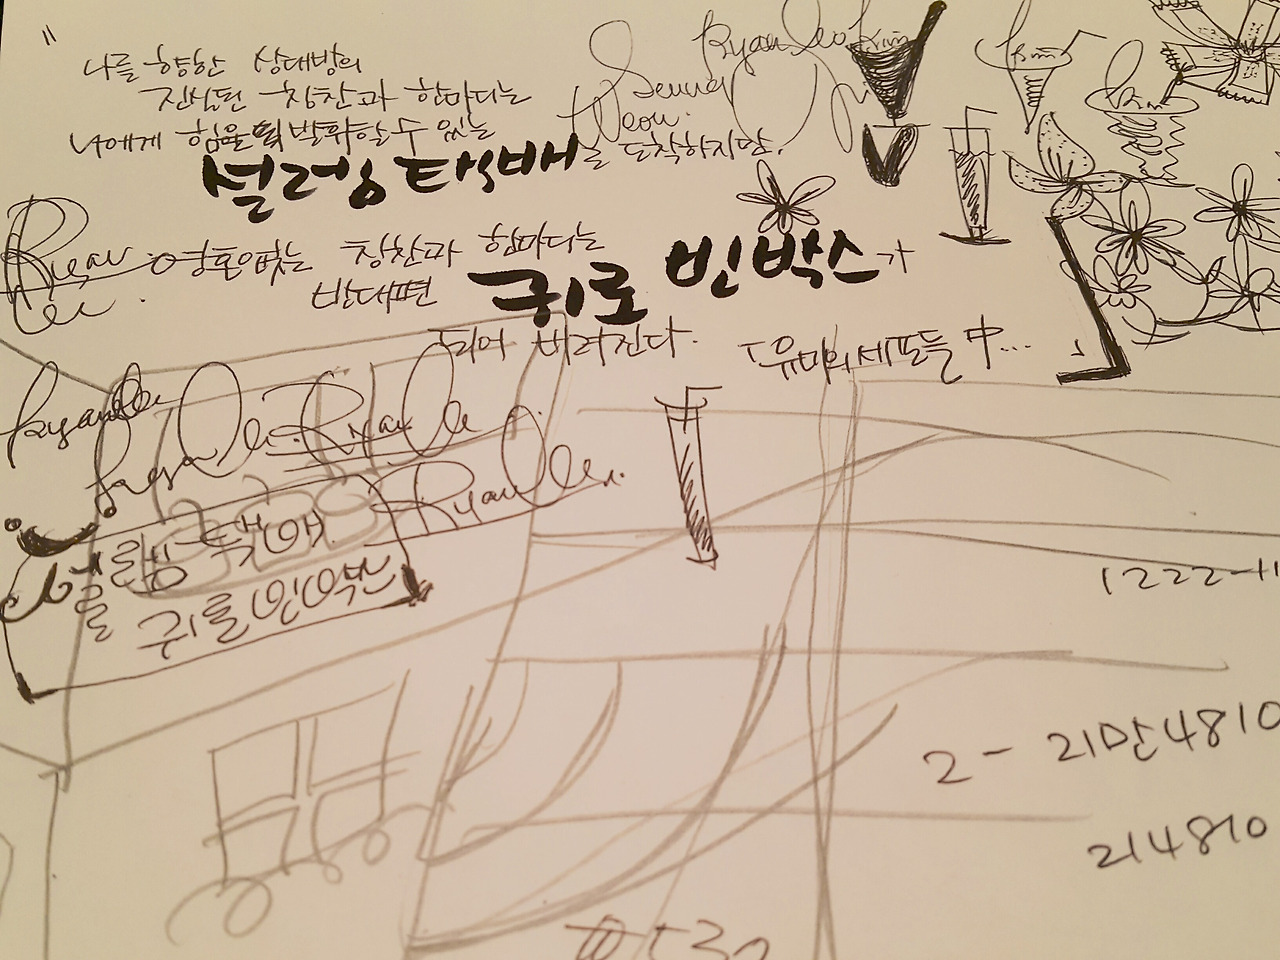 "
나를 향한 상대방의
진심된 칭찬과 한마디는
나에게 힘을 발휘할 수 있는
설러임 택배를 도착하지만,
영혼없는 칭찬과 한마디는
반대편 귀로 빈 박스가
되어 버려진다.
「유미의 세포들 中...
」
Ryan Leo Kim
Seung
Yeon.
Kim
Kim
Ryan
Lee.
Ryan Lee
Ryan Lee. Ryan Lee
Ryan Lee.
설렘 택배
를 귀를 빈박스
1222-11
2 - 21만4810
214810